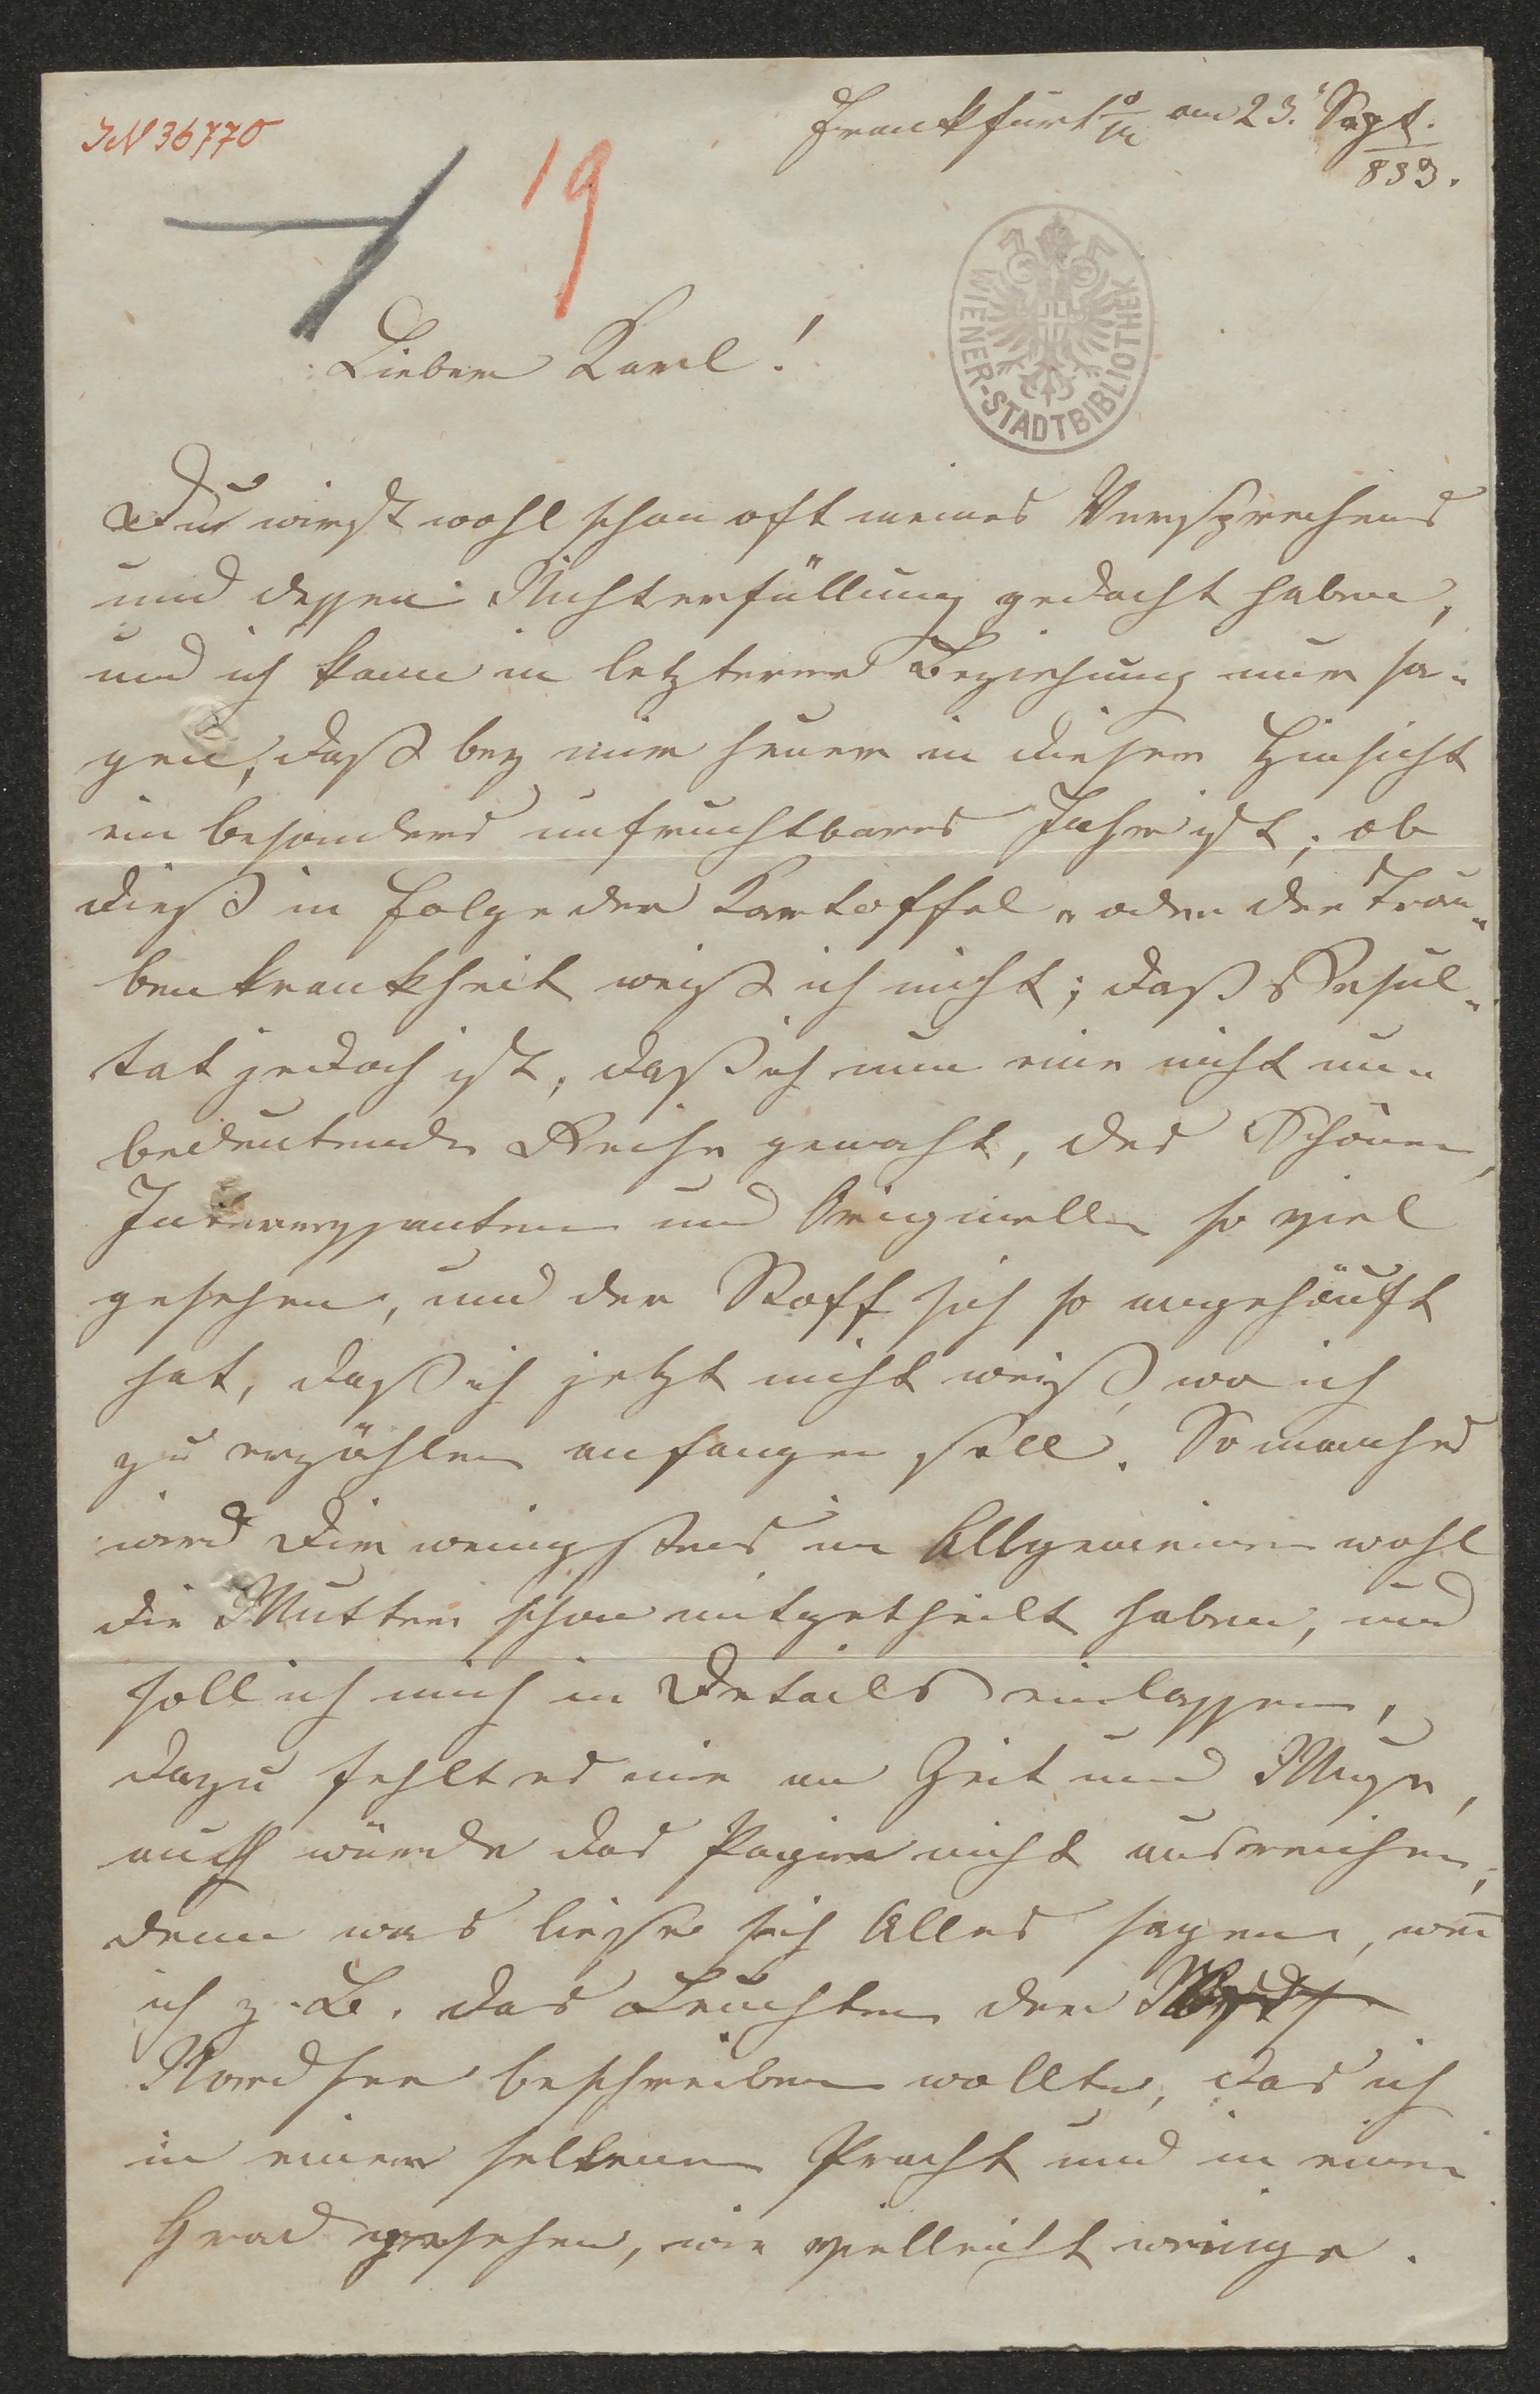 IN 36770
Frankfurt a/M am 23. Sept.
853.
19
WIENER-STADTBIBLIOTHEK
Lieber Karl!
Du wirst wohl schon oft meines Versprechens
und dessen Nichterfüllung gedacht haben,
und ich kann in letzterer Beziehung nur sa-
gen, daß bey mir heuer in dieser Hinsicht
ein besonders unfruchtbares Jahr ist; ob
dieß in Folge der Kartoffel- oder der Trau-
benkrankheit weiß ich nicht; daß Resul-
tat jedoch ist, daß ich nun eine nicht un-
bedeutende Reise gemacht, des Schönen,
Interessanten und Originellen so viel
gesehen, und der Stoff sich so angehäuft
hat, daß ich jetzt nicht weiß, wo ich
zu erzählen anfangen soll. So manches
wird Dir wenigstens im Allgemeinen wohl
die Mutter schon mitgetheilt haben, und
soll ich mich in Details einlassen,
dazu fehlt es mir an Zeit und Muße,
auch würde das Papier nicht ausreichen,
denn was ließe sich Alles sagen, wen̄
ich z. B. das Leuchten der
Nordsee beschreiben wollte, das ich
in einer seltenen Pracht und in einem
Grad gesehen, wie vielleicht wenige.